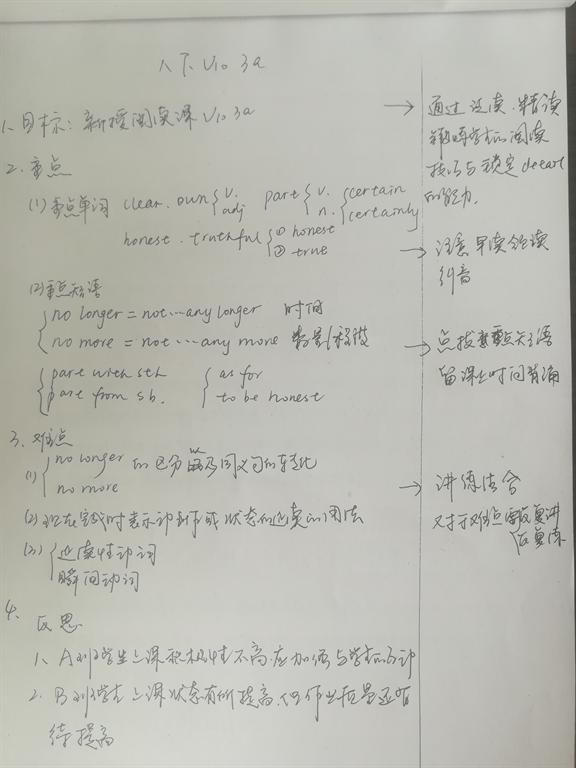 八下 U10 3a
1、目标：新授阅读课 U10 3a
→ 通过泛读、精读
锻炼学生的阅读
技巧与锁定detail
的能力。
2、重点
(1) 重点单词 clear. own { v. adj part { v. n. { certain certainly
honest . truthful { ① honest ② true
→ 注意早读领读
纠音
(2) 重点短语
{ no longer = not…any longer 时间
no more = not…any more 数量/程度
{ part with sth
part from sb.
{ as for
to be honest
→ 点拨重点短语
留课上时间背诵
3、难点
(1) { no longer
no more
的区分及同义句的转化
(2) 现在完成时表示动作或状态的延续的用法
(3) { 延续性动词
瞬间动词
→ 讲练结合
对于难点反复讲
反复练
4、反思
1、A班学生上课积极性不高，应加强与学生的互动
2、B班学生上课状态有所提高，但作业质量还有
待提高